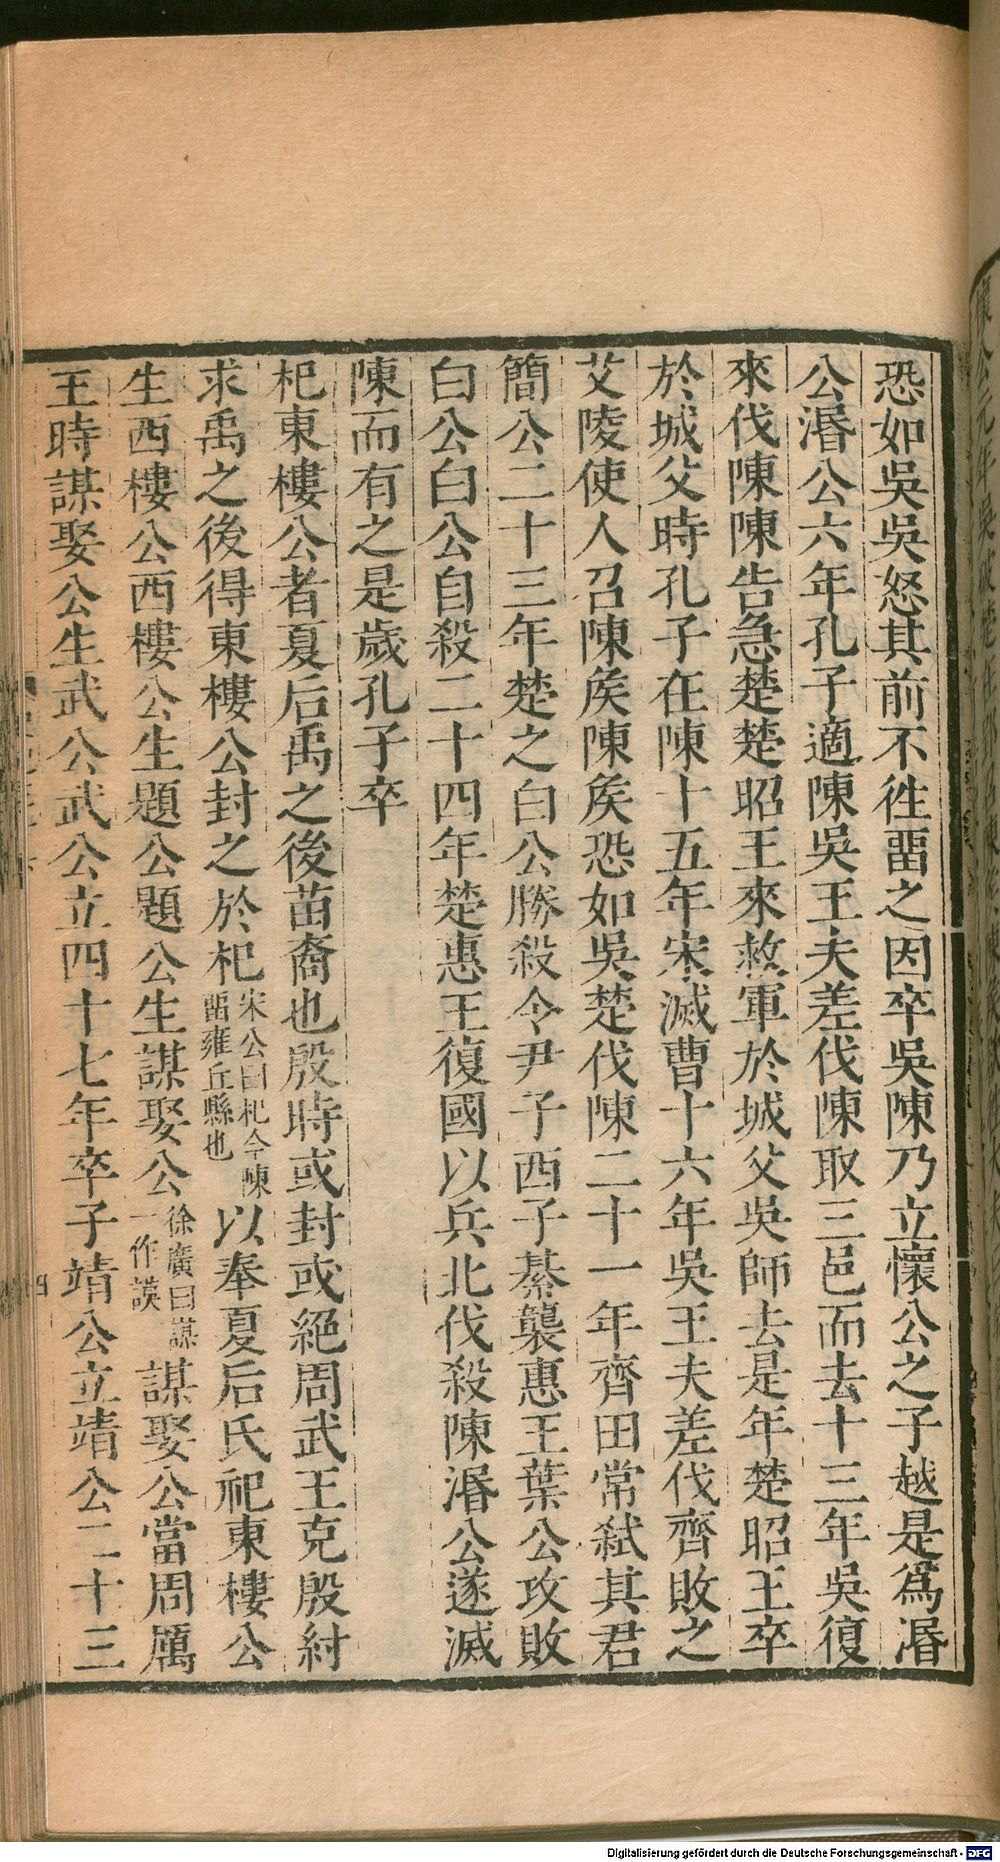 恐如吳吳怒其前不徃畱之因卒吳陳乃立懷公之子越是爲湣
公湣公六年孔子適陳吳王夫差伐陳取三邑而去十三年吳復
來伐陳陳告急楚楚昭王來救軍於城父吳師去是年楚昭王卒
於城父時孔子在陳十五年宋滅曹十六年吳王夫差伐齊敗之
艾陵使人召陳矦陳矦恐如吳楚伐陳二十一年齊田常弑其君
簡公二十三年楚之白公勝殺令尹子西子綦襲惠王葉公攻敗
白公白公自殺二十四年楚惠王復國以兵北伐殺陳湣公遂滅
陳而有之是歲孔子卒
杞東樓公者夏后禹之後苗裔也殷時或封或絕周武王克殷紂
求禹之後得東樓公封之於杞宋公曰杞今陳畱雍丘縣也以奉夏后氏祀東樓公
生西樓公西樓公生題公題公生謀娶公徐廣曰謀一作謨謀娶公當周厲
王時謀娶公生武公武公立四十七年卒子靖公立靖公二十三
四
Digitalisierung gefördert durch die Deutsche Forschungsgemeinschaft - DFG